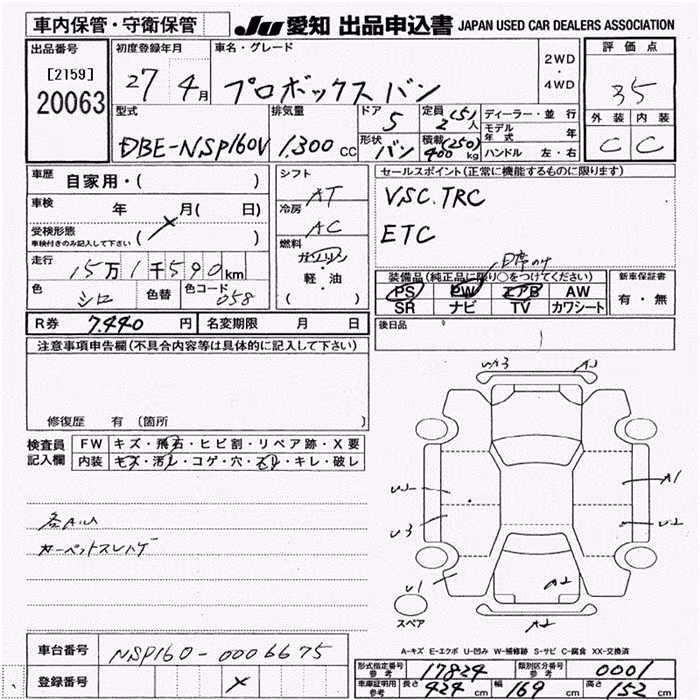 車内保管・守衛保管
JU 愛知 出品申込書 JAPAN USED CAR DEALERS ASSOCIATION
出品番号
[2159]
20063
初度登録年月
27 4月
車名・グレード
プロボックスバン
2WD
・
4WD
評価点
3.5
外装 内装
C C
型式
DBE-NSP160V
排気量
1.300 CC
ドア
5
形状
バン
定員 (5)
2人
積載 (250)
400 kg
ディーラー・並行
モデル年式 年
ハンドル 左・右
車歴 自家用・( )
車検 年 月( 日)
受検形態
車検付きのみ記入して下さい ( × )
走行 15万1千590km
色 シロ 色替 色コード 058
シフト
AT
冷房
AC
燃料
ガソリン
・
軽・油
( )
セールスポイント(正常に機能するものに限ります)
VSC.TRC
ETC
D席のみ
装備品(純正品に限り○をつけてください)
PS PW エアB AW
SR ナビ TV カワシート
新車保証書
有・無
R券 7.440 円 名変期限 月 日
後日品
注意事項申告欄(不具合内容等は具体的に記入して下さい)
修復歴 有 〔箇所 〕
検査員
記入欄
FW キズ・飛石・ヒビ割・リペア跡・X要
内装 キズ・汚レ・コゲ・穴・スレ・キレ・破レ
各AU
カーペットスレハゲ
W3 A1
W A1
U3 U2
U1 A2
A2
スペア
A-キズ E-エクボ U-凹み W-補修跡 S-サビ C-腐食 XX-交換済
車台番号 NSP160-0006675
登録番号 ×
形式指定番号 参考 17824 類別区分番号 参考 0001
車庫証明用 参考 長さ 424 cm 幅 169 cm 高さ 152 cm